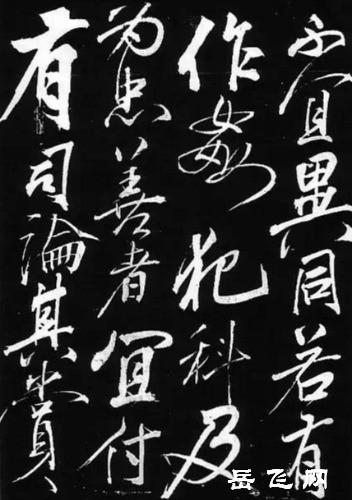 不宜異同若有
作姦犯科及
為忠善者宜付
有司論其賞
岳飞网